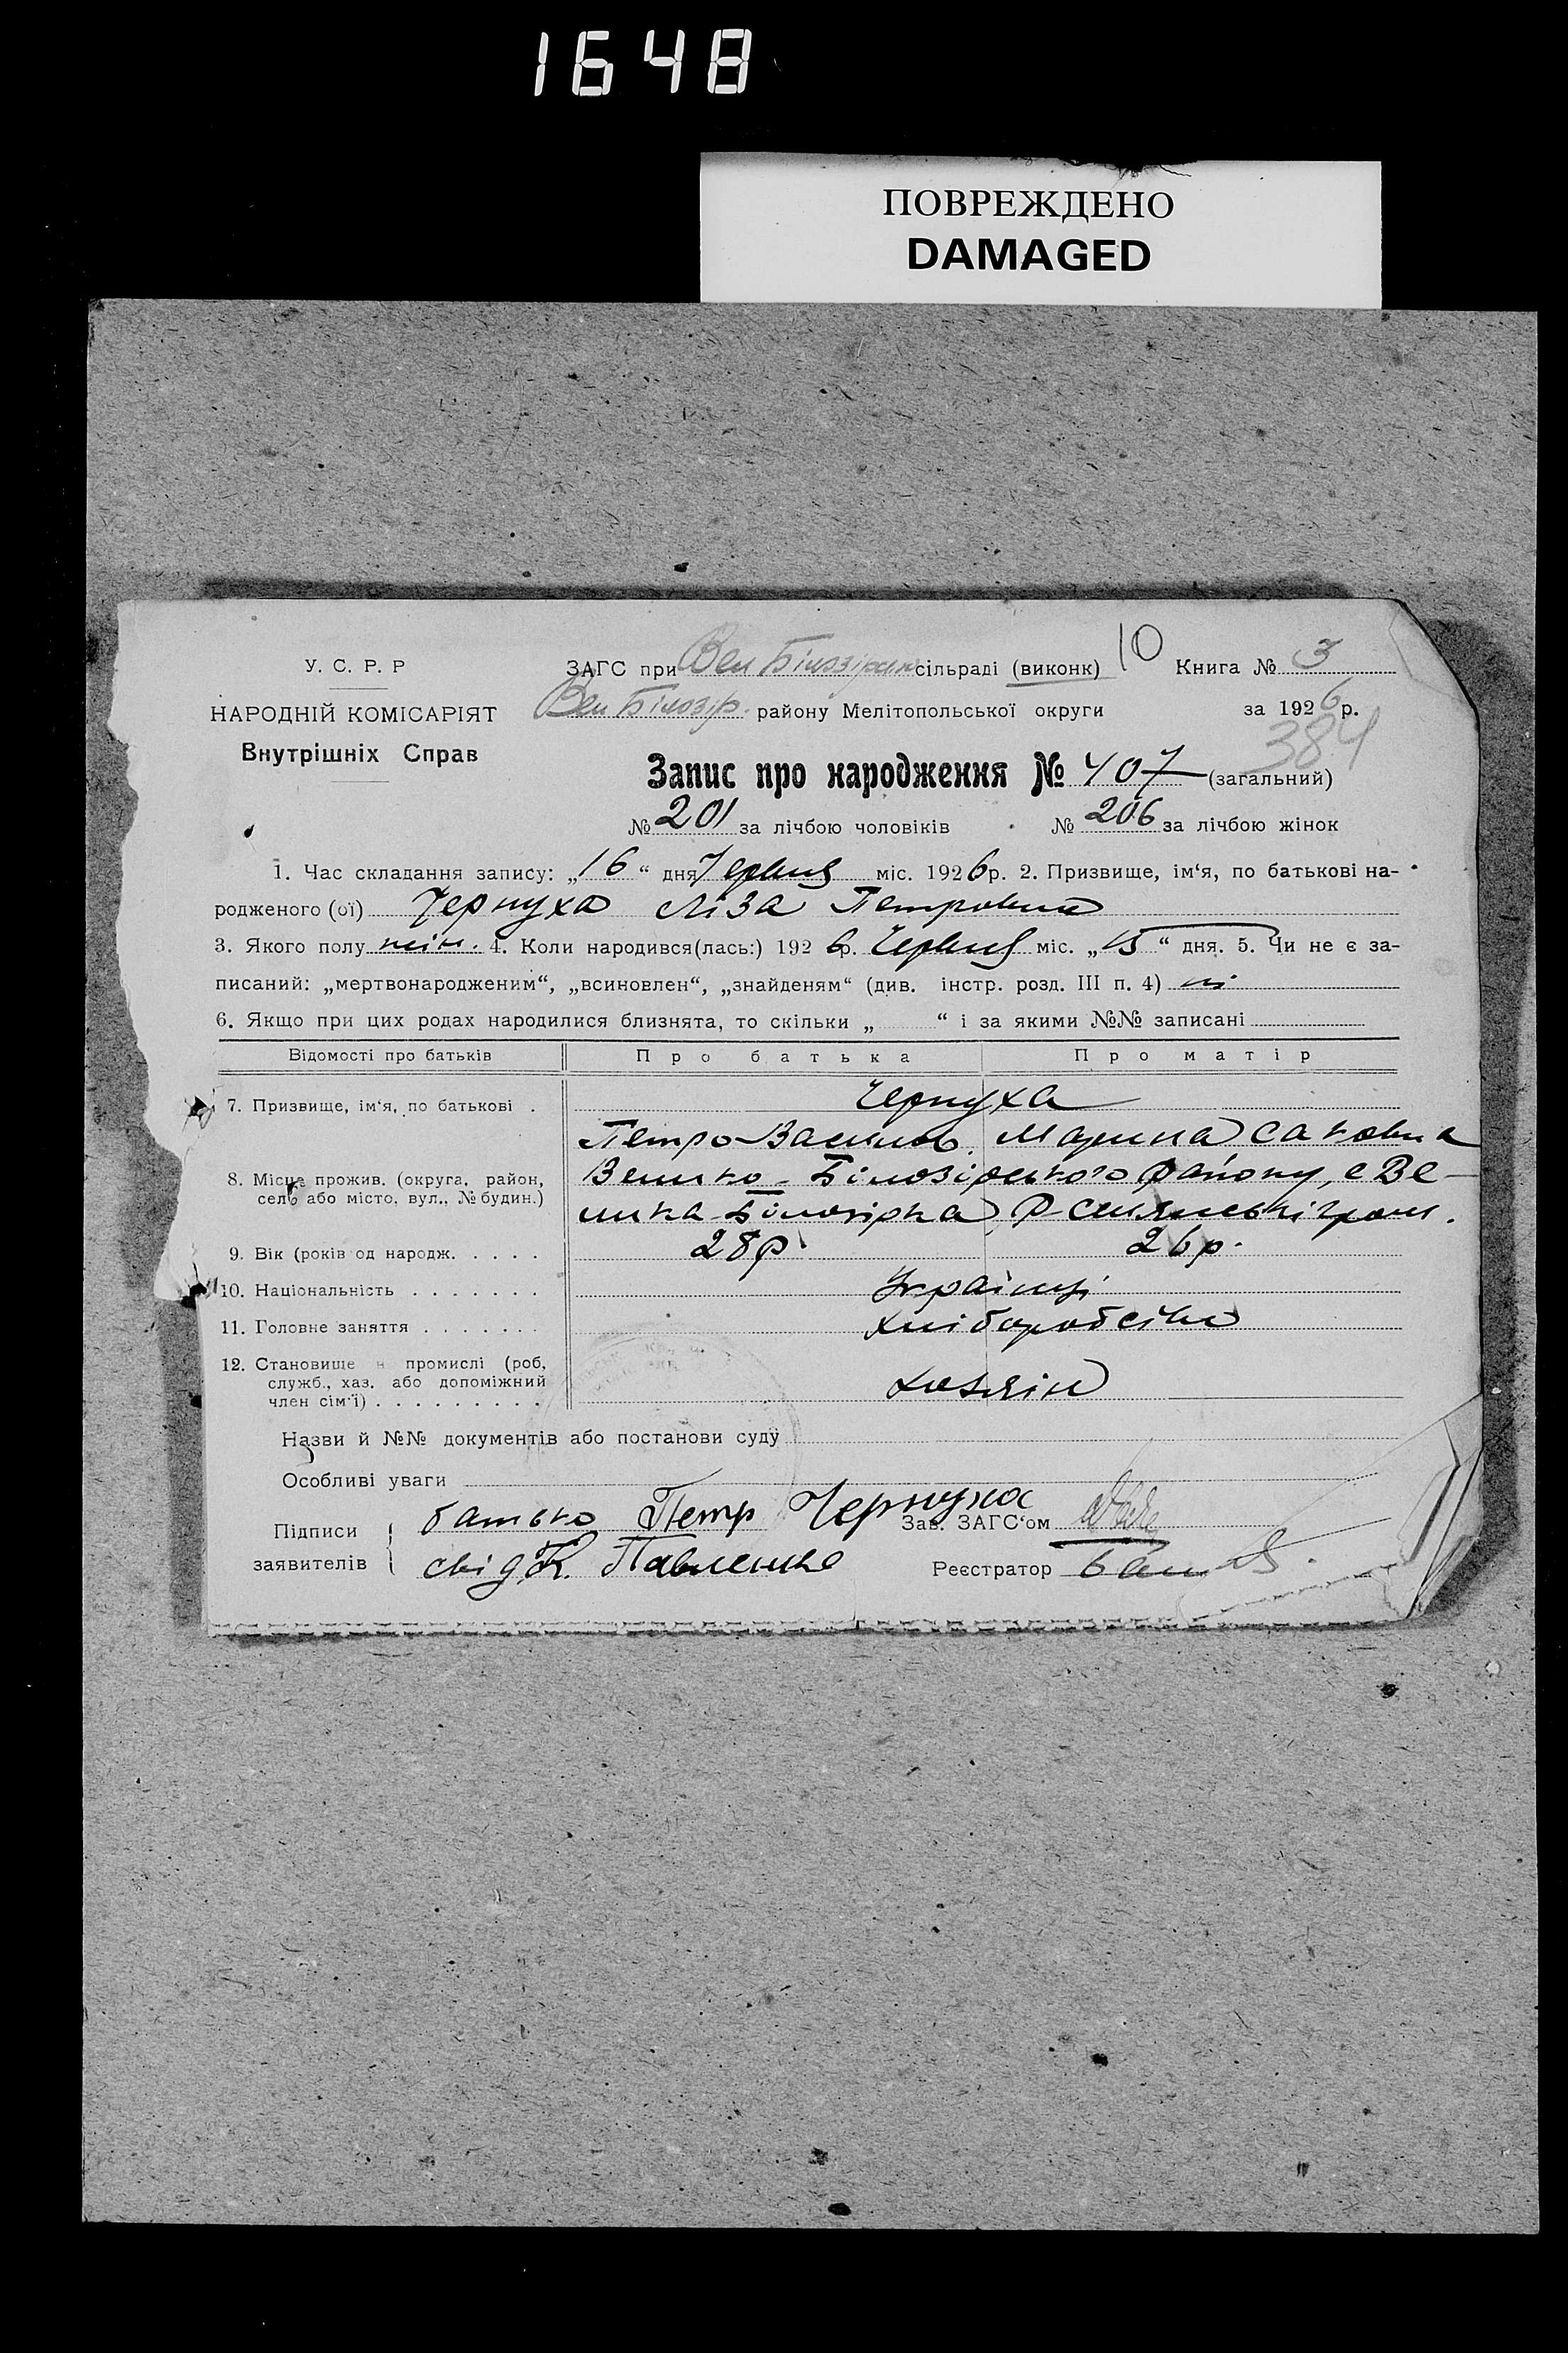 1648
ПОВРЕЖДЕНО
DAMAGED
У. С. Р. Р
НАРОДНІЙ КОМІСАРІЯТ
Внутрішніх Справ
ЗАГС при Вел Білозірськ сільраді (виконк) 10 Книга № 3
Вел Білозір. району Мелітопольської округи за 1926 р.
384
Запис про народження № 407 (загальний)
№ 201 за лічбою чоловіків № 206 за лічбою жінок
1. Час складання запису: „16“ дня Червня міс. 1926 р. 2. Призвище, ім‘я, по батькові на-
родженого (ої) Чернуха Ліза Петровна
3. Якого полу жін. 4. Коли народився(лась:) 1926 р. Червня міс. „15“ дня. 5. Чи не є за-
писаний: „мертвонародженим“, „всиновлен“, „знайденям“ (див. інстр. розд. III п. 4) ні
6. Якщо при цих родах народилися близнята, то скільки „ “ і за якими №№ записані
Відомості про батьків Про батька Про матір
7. Призвище, ім‘я, по батькові . Чернуха
Петро Василів. Марина Саковна
8. Місце прожив. (округа, район, село або місто, вул., № будин.) Велико-Білозірського району, с Ве-
лика-Білозірка, Р-Силянські гром.
9. Вік (років од народж. . . . . 28 р. 26 р.
10. Національність . . . . . . . Українці
11. Головне заняття . . . . . . . хліборобство
12. Становище в промислі (роб,
служб., хаз. або допоміжний
член сім‘ї) . . . . . . . . . хозяїн
Назви й №№ документів або постанови суду
Особливі уваги
Підписи заявителів { батько Петр Чернуха Зав. ЗАГС‘ом
свід. К. Павленко Реєстратор